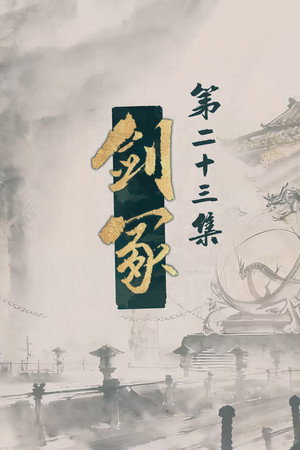 剑冢
第二十三集